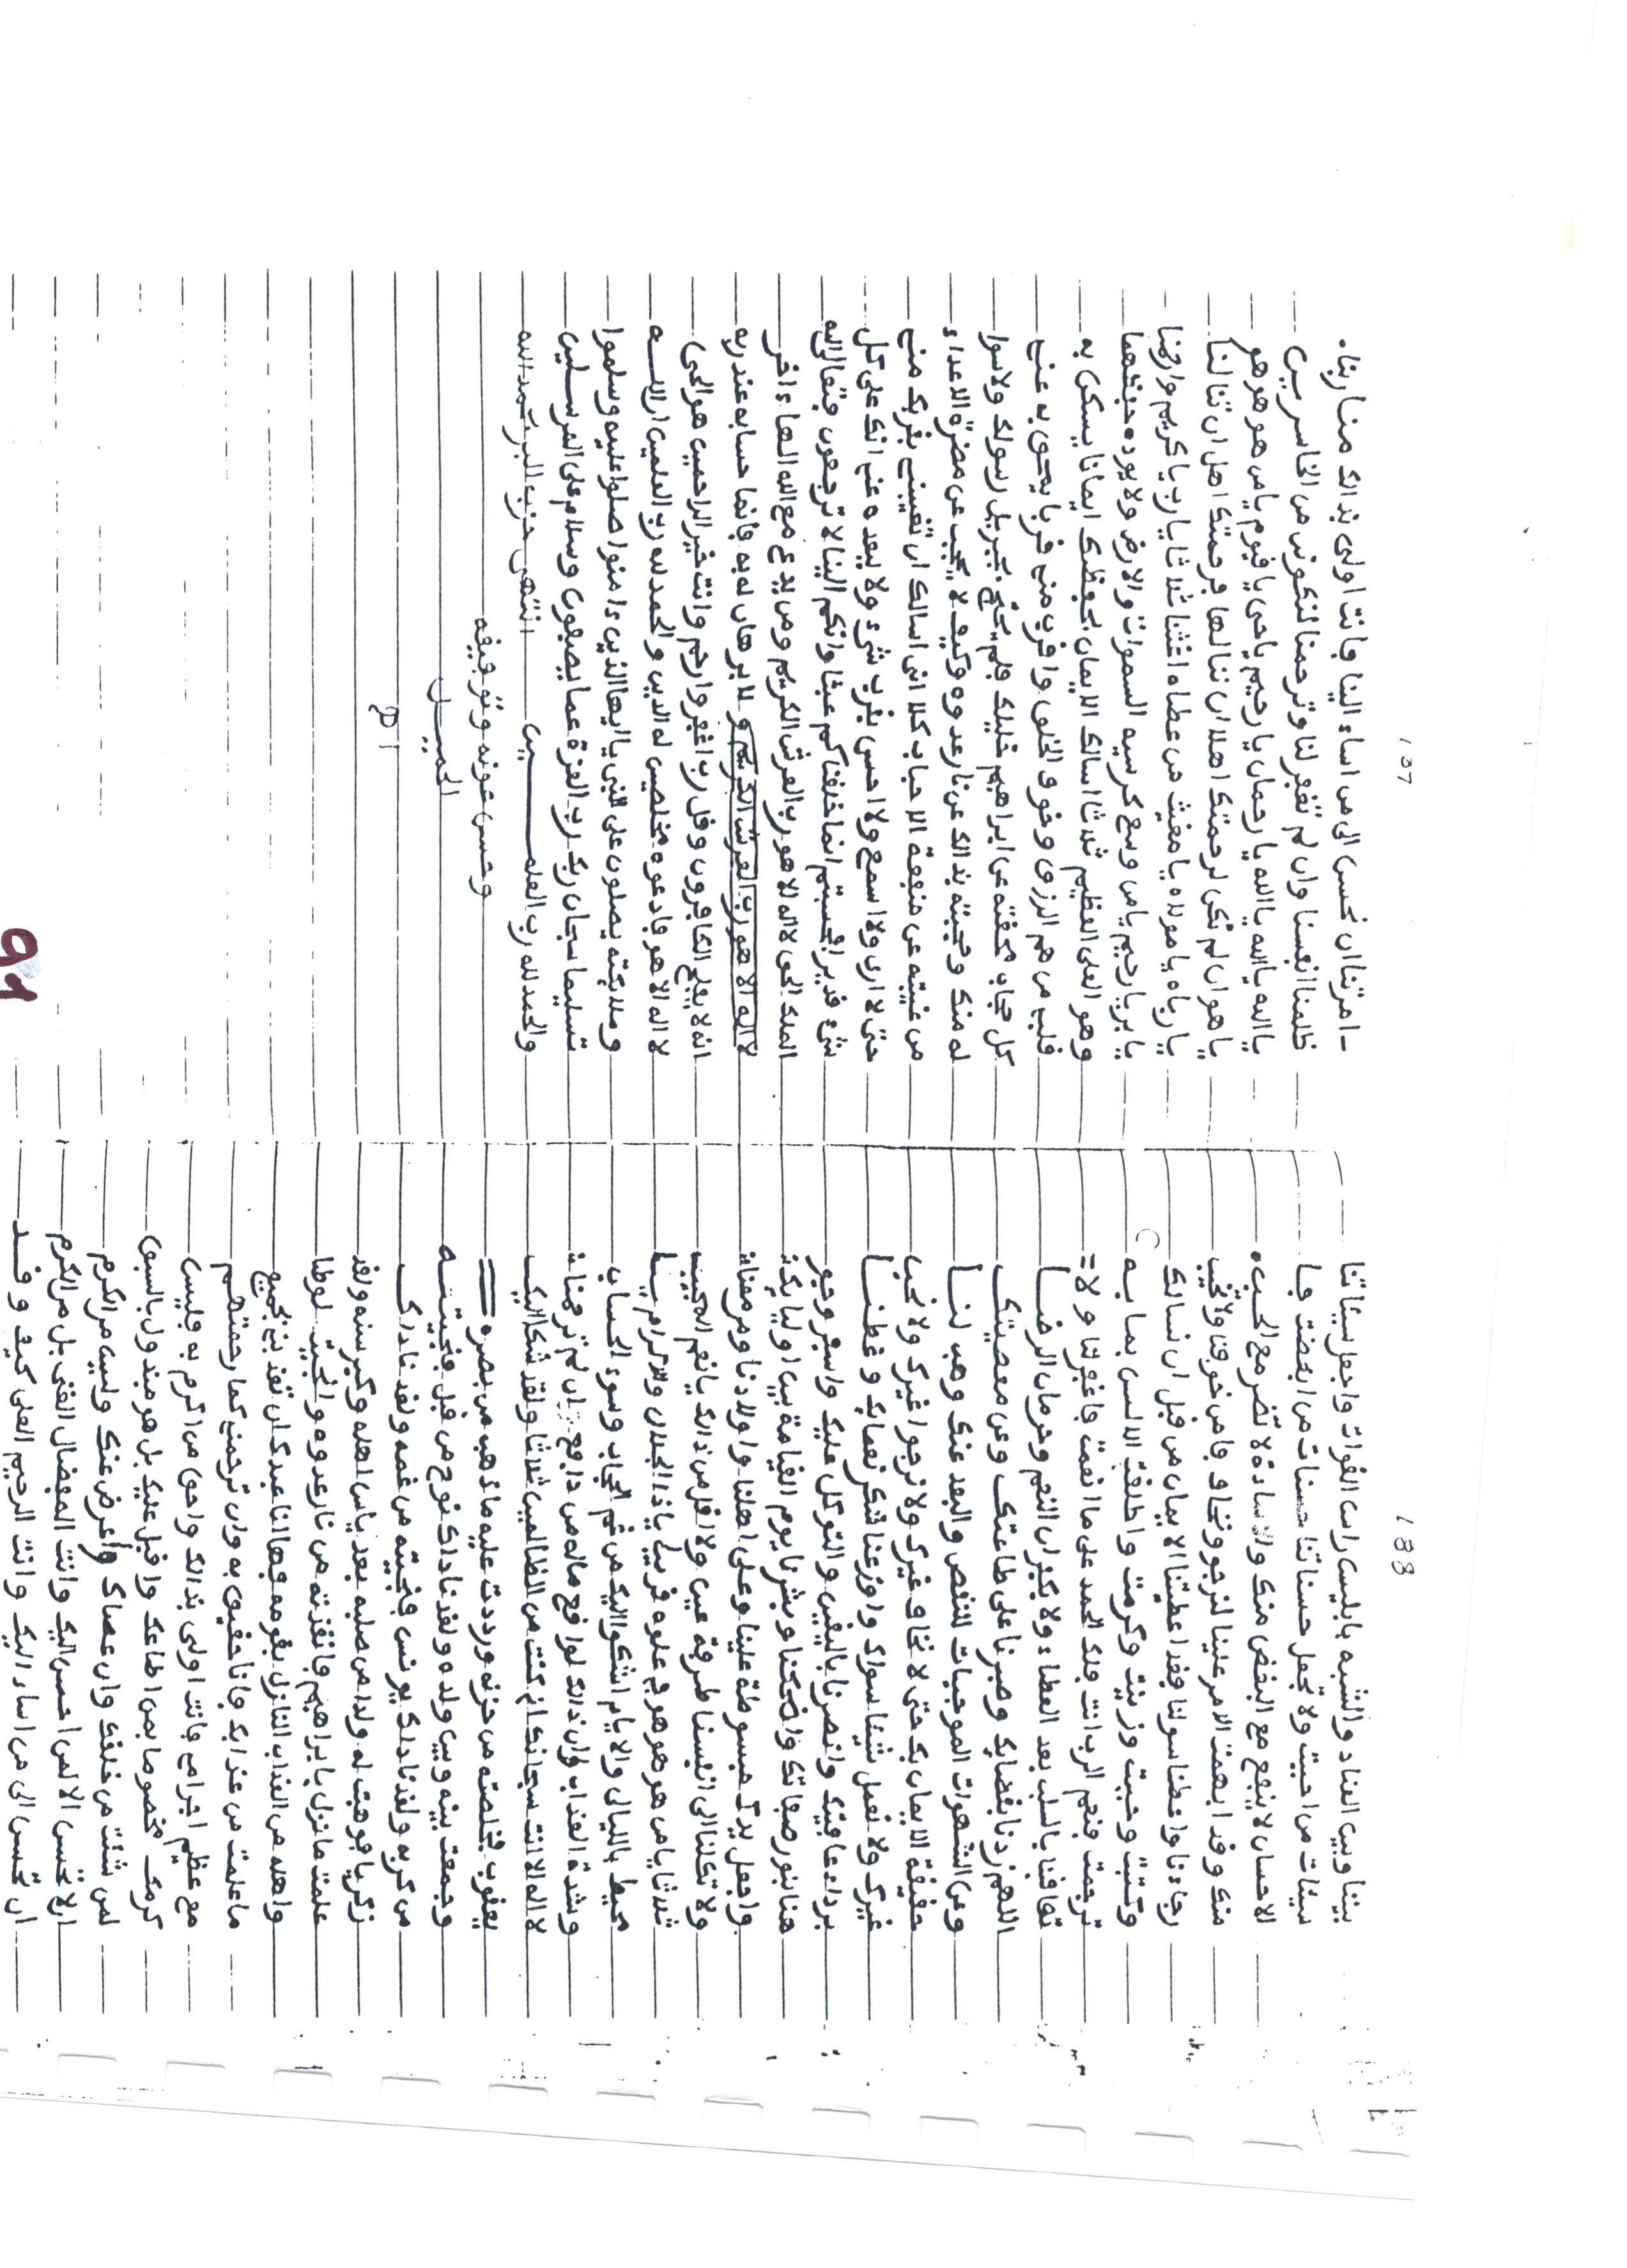 188
بيننا وبين العناد والشبه بابليس راس الغوات واجعل سيئاتنا
سيئات من احببت ولا تجعل حسناتنا حسنات من ابغضت فا
لاحسان لا ينفع مع البغض منك والاساءة لا تضر مع الحب
منك وقد ابهمت الامر علينا لنرجو ونخاف فامن خوفنا ولا تخيب
رجاءنا واعطنا سولنا فقد اعطيتنا الايمان من قبل ان نسالك
وكتبت وحببت وزينت وكرهت واطلقت الالسن بما به
ترجمت فنعم الرب انت فلك الحمد على ما انعمت فاغفر لنا ولا
تعاقبنا بالسلب بعد العطاء ولا بكفران النعم وحرمان الرضا
اللهم رضنا بقضائك وصبرنا على طاعتك وعن معصيتك
وعن الشهوات الموجبات للنقص والبعد عنك وهب لنا
حقيقة الايمان بك حتى لا نخاف غيرك ولا نرجوا غيرك ولا نحب
غيرك ولا نعبد شيئا سواك واوزعنا شكر نعمائك وغطنا
برداء عافيتك وانصرنا باليقين والتوكل عليك واسفر وجو
هنا بنور صفاتك واضحكنا وبشرنا يوم القيامة بين اوليائك
واجعل يدك مبسوطة علينا وعلى اهلنا واولادنا ومن معنا
ولا تكلنا الى انفسنا طرفة عين ولا اقل من ذالك يا نعم المجيب
ثلاثا يا من هو هو هو في علوه قريب يا ذا الجلال والاكرام يا
محيط بالليالي والايام اشكو اليك من غم الحجاب وسوء الحساب
وشدة العذاب وان ذالك لواقع ماله من دافع ان لم ترحمنا
لا اله الا انت سبحانك اني كنت من الظالمين ثلاثا ولقد شكا اليك
يعقوب فخلصته من حزنه ورددت عليه ما ذهب من بصره
وجمعت بينه وبين ولده ولقد ناداك نوح من قبل فنجيته
من كربه ولقد ناداك يونس فنجيته من غمه ولقد ناداك
زكرياء فوهبت له ولدا من صلبه بعد ياس اهله وكبر سنه ولقد
علمت ما نزل بابراهيم فانقذته من نار عدوه وانجيت لوطا
واهله من العذاب النازل بقومه فها انا عبدك ان تعذبني بجميع
ما علمت من عذابك فانا حقيق به وان ترحمني كما رحمتهم
مع عظيم اجرامي فانت اولى بذالك واحق من اكرم به فليس
كرمك مخصوصا بمن اطاعك واقبل عليك بل هو مبذول بالسبق
لمن شئت من خلقك وان عصاك واعرض عنك وليس من الكرم
ان لا تحسن الا لمن احسن اليك وانت المفضال الغني بل من الكرم
ان تحسن الى من اساء اليك وانت الرحيم العلي كيف وقد
187
امرتنا ان نحسن الى من اساء الينا فانت اولى بذالك منا ربنا
ظلمنا انفسنا وان لم تغفر لنا وترحمنا لنكونن من الخاسرين
يا الله يا الله يا الله يا رحمان يا رحيم يا حي يا قيوم يا من هو هو هو
يا هو ان لم نكن لرحمتك اهلا ان ننالها فرحمتك اهل ان تنالنا
يا رباه يا مولاه يا مغيث من عصاه اغثنا ثلاثا يا رب يا كريم وارحمنا
يا بر يا رحيم يا من وسع كرسيه السموات والارض ولا يوده حفظهما
وهو العلي العظيم ثلاثا اسالك الايمان بحفظك ايمانا يسكن به
قلبي من هم الرزق وخوف الخلق واقرب مني قربا يمحق به عني
كل حجاب محقته عن ابراهيم خليلك فلم يحتج لجبريل رسولك ولا سوا
له منك وحجبته بذالك عن نار عدوه وكيف لا يحجب عن مضرة الاعداء
من غيبته عن منفعة الاحباب كلا اني اسالك ان تغيبني بقربك مني
حتى لا ارى ولا اسمع ولا احس بقرب شيء ولا ببعده عني انك على كل
شيء قدير افحسبتم انما خلقناكم عبثا وانكم الينا لا ترجعون فتعالى الله
الملك الحق لا اله الا هو رب العرش الكريم ومن يدع مع الله الها ءاخر
لا اله الا هو رب العرش الكريم و لا برهان له به فانما حسابه عند ربه
انه لا يفلح الكافرون وقل رب اغفر وارحم وانت خير الراحمين هو الحي
لا اله الا هو فادعوه مخلصين له الدين والحمد لله رب العلمين ان الله
وملائكته يصلون على النبي يا ايها الذين ءامنوا صلوا عليه وسلموا
تسليما سبحان ربك رب العزة عما يصفون وسلام على المرسلين
والحمد لله رب العلمين انتهى حزب البر بحمد الله
وحسن عونه وتوفيقه
الجميل
اﻫ